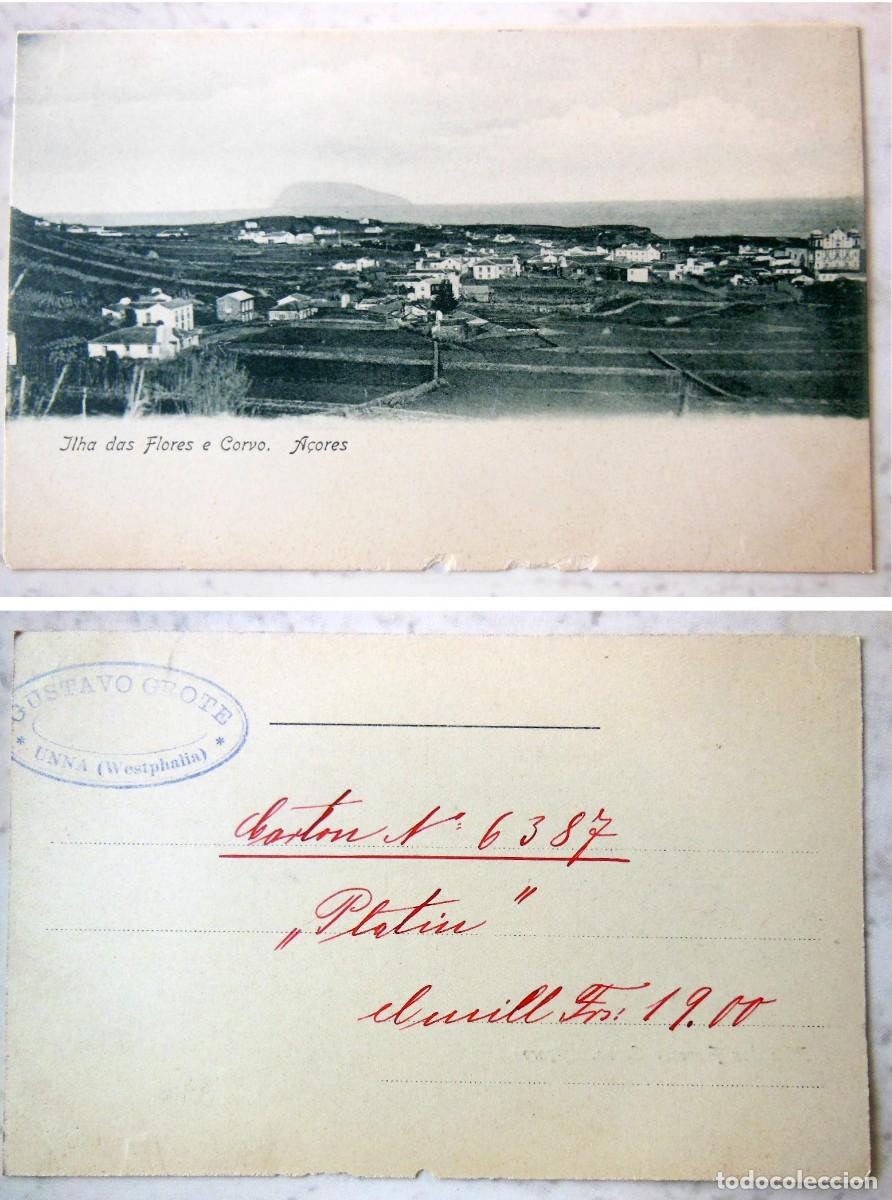 Ilha das Flores e Corvo. Açores
GUSTAVO GROTE
* UNNA (Westphalia) *
Carton Nº 6387
„Platin"
el mill Frs: 19.00
todocoleccion